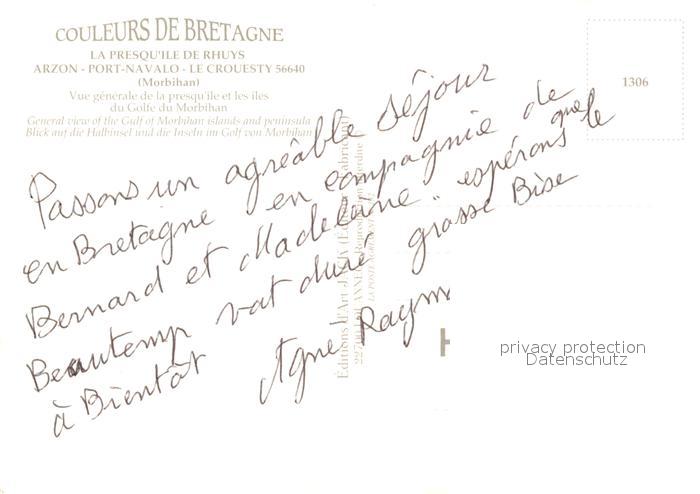 COULEURS DE BRETAGNE
LA PRESQU'ILE DE RHUYS
ARZON - PORT-NAVALO - LE CROUESTY 56640
(Morbihan)
Vue générale de la presqu'île et les îles
du Golfe du Morbihan
General view of the Gulf of Morbihan islands and peninsula
Blick auf die Halbinsel und die Inseln im Golf von Morbihan
1306
Passons un agréable séjour
en Bretagne en compagnie de
Bernard et Madeleine espérons que le
Beautemp vat dure grosse Bise
à Bientôt Agnè Raym
Éditions d'Art
privacy protection
Datenschutz